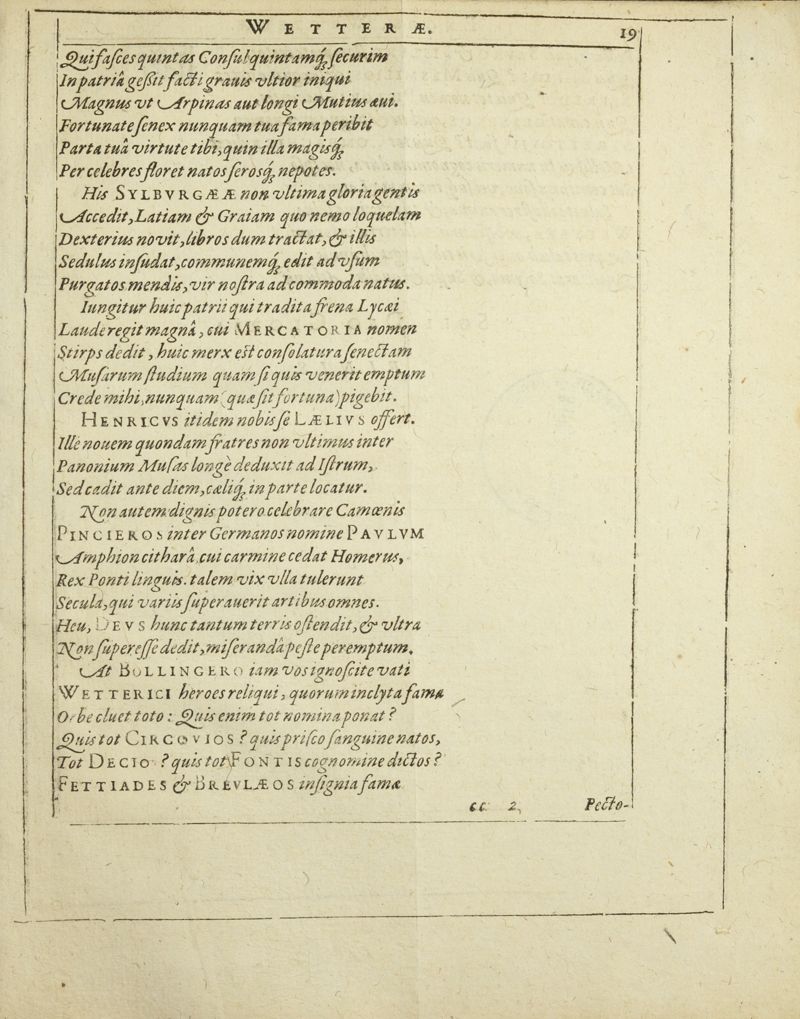 WETTERÆ. 19
Qui fasces quintas Consul quintamq́; securim
In patriâ gessit facti grauis vltior iniqui
Magnus vt Arpinas aut longi Mutius æui.
Fortunate senex nunquam tua fama peribit
Parta tuâ virtute tibi, quin illa magisq́;
Per celebres floret natos serosq́; nepotes.
His SYLBVRGÆÆ non vltima gloria gentis
Accedit, Latiam & Graiam quo nemo loquelam
Dexterius novit, libros dum tractat, & illis
Sedulus insudat, communemq́; edit ad vsum
Purgatos mendis, vir nostra ad commoda natus.
Iungitur huic patrii qui tradita frena Lycæi
Laude regit magnâ, cui MERCATORIA nomen
Stirps dedit, huic merx est consolatura senectam
Musarum studium quam si quis venerit emptum
Crede mihi, nunquam (quæ sit fortuna) pigebit.
HENRICVS itidem nobis se LÆLIVS offert.
Ille nouem quondam fratres non vltimus inter
Panonium Musas longè deduxit ad Istrum,
Sed cadit ante diem, cæliq́; in parte locatur.
Non autem dignis potero celebrare Camœnis
PINCIEROS inter Germanos nomine PAVLVM
Amphion citharâ, cui carmine cedat Homerus,
Rex Ponti linguis. talem vix vlla tulerunt
Secula, qui variis superauerit artibus omnes.
Heu, DEVS hunc tantum terris ostendit, & vltra
Non superesse dedit, miserandâ peste peremptum.
At BULLINGERO iam vos ignoscite vati
WETTERICI heroes reliqui, quorum inclyta fama
Orbe cluet toto: Quis enim tot nomina ponat?
Quis tot CIRCOVIOS? quis prisco sanguine natos,
Tot DECIO ? quis tot FONTIS cognomine dictos?
FETTIADES & BREVLÆOS insignia fama
cc 2 Pecto-